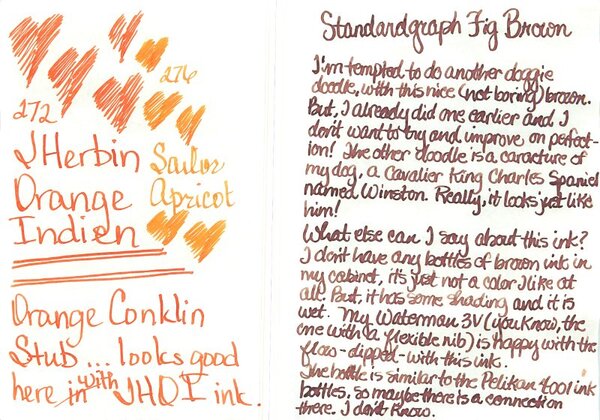 276
272
J Herbin
Orange
Indien
Sailor
Apricot
Orange Conklin
Stub... looks good
here in with JHOI ink.
Standardgraph Fig Brown
I'm tempted to do another doggie
doodle, with this nice (not boring) brown.
But, I already did one earlier and I
don't want to try and improve on perfect-
ion! The other doodle is a caracture of
my dog, a Cavalier King Charles Spaniel
named Winston. Really, it looks just like
him!
What else can I say about this ink?
I don't have any bottles of brown ink in
my cabinet, it's just not a color I like at
all. But, it has some shading and it is
wet. My Waterman 3V (you know, the
one with a flexible nib) is happy with the
flow-dipped-with this ink.
The bottle is similar to the Pelikan 4001 ink
bottles, so maybe there is a connection
there. I don't know.